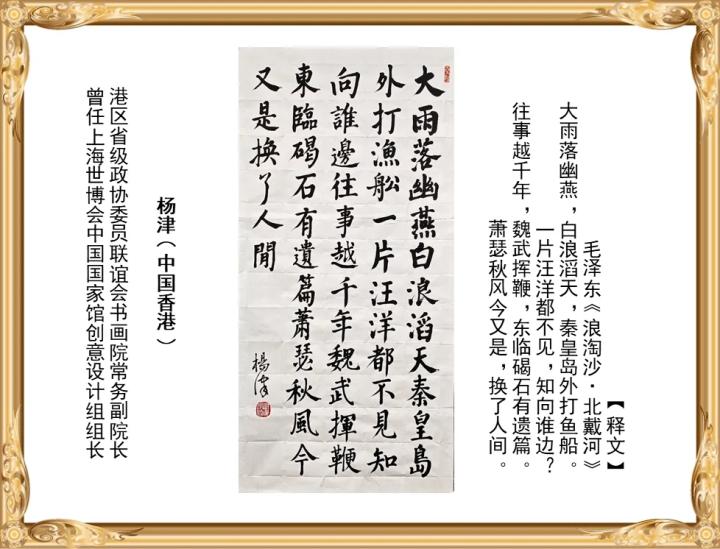 【释文】
毛泽东《浪淘沙·北戴河》
大雨落幽燕，白浪滔天，秦皇岛外打鱼船。
一片汪洋都不见，知向谁边？
往事越千年，魏武挥鞭，东临碣石有遗篇。
萧瑟秋风今又是，换了人间。
大雨落幽燕白浪滔天秦皇島
外打漁舩一片汪洋都不見知
向誰邊往事越千年魏武揮鞭
東臨碣石有遺篇蕭瑟秋風今
又是换了人間
楊津
杨津（中国香港）
港区省级政协委员联谊会书画院常务副院长
曾任上海世博会中国国家馆创意设计组组长